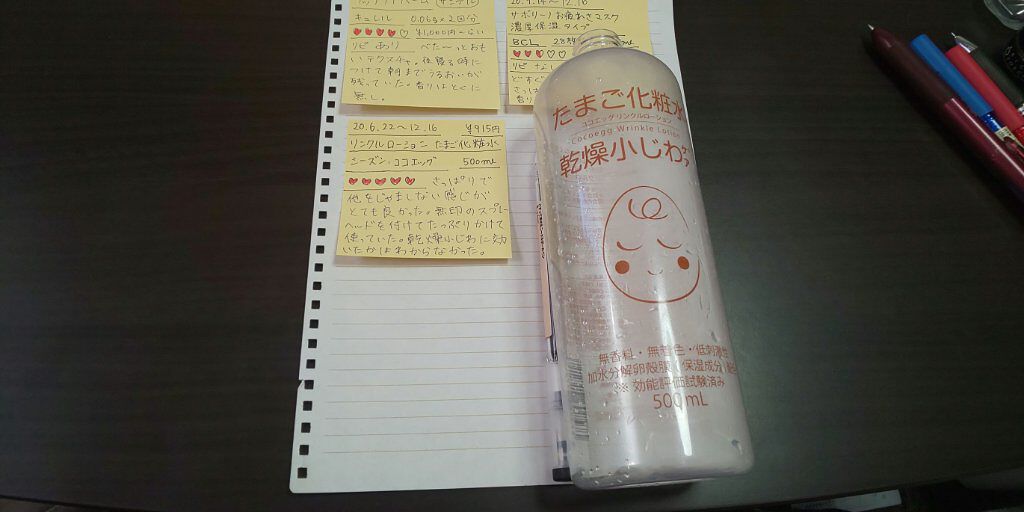 キュレル 0.06g×2回分
¥1,000円〜らい
リピ あり べた〜っとおも
いテクスチャ。夜寝る時に
つけて朝までうるおいが
残っていた。香りはとくに
無し。
20.9.14〜12.16
サボリーノ お疲れさマスク
濃厚保湿タイプ
BCL 28枚
リピ なし
20.6.22〜12.16 ¥915円
リンクルローション たまご化粧水
シーズン:ココエッグ 500mL
さっぱりで
他をじゃましない感じが
とても良かった。無印のスプレー
ヘッドを付けてたっぷりかけて
使っていた。乾燥小じわに効
いたかはわからなかった。
たまご化粧水
ココエッグリンクルローション
Cocoegg Wrinkle Lotion
乾燥小じわケア
無香料・無着色・低刺激性
加水分解卵殻膜(保湿成分)配合
※効能評価試験済み
500mL